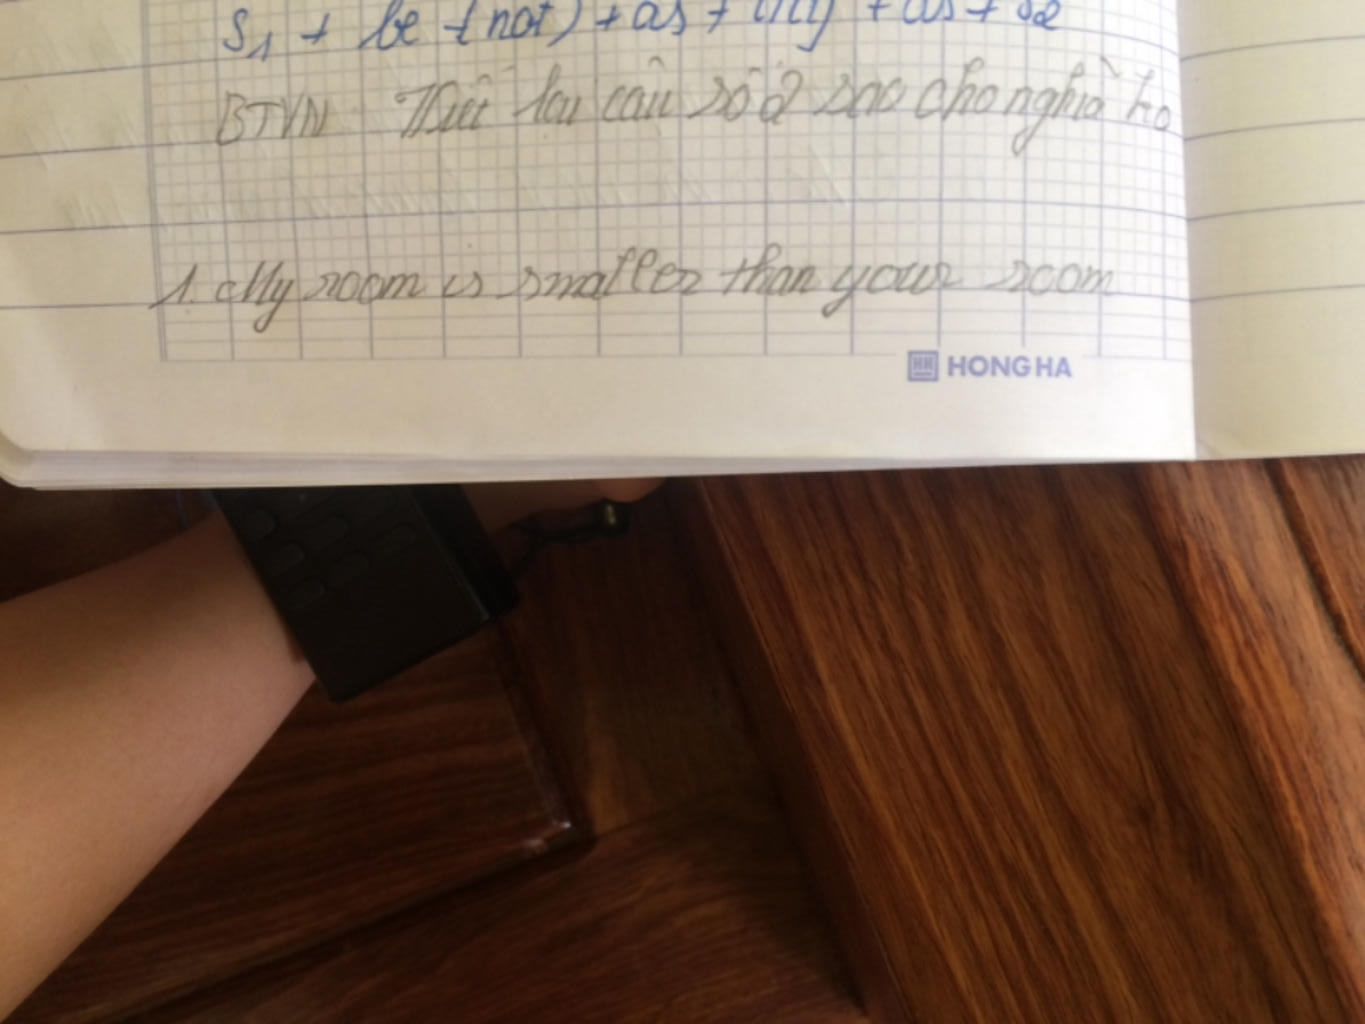 S1 + be + (not) + as + adj + as + S2
BTVN Viết lại câu số 2 sao cho nghĩa ko
1. My room is smaller than your room
HH HONG HA